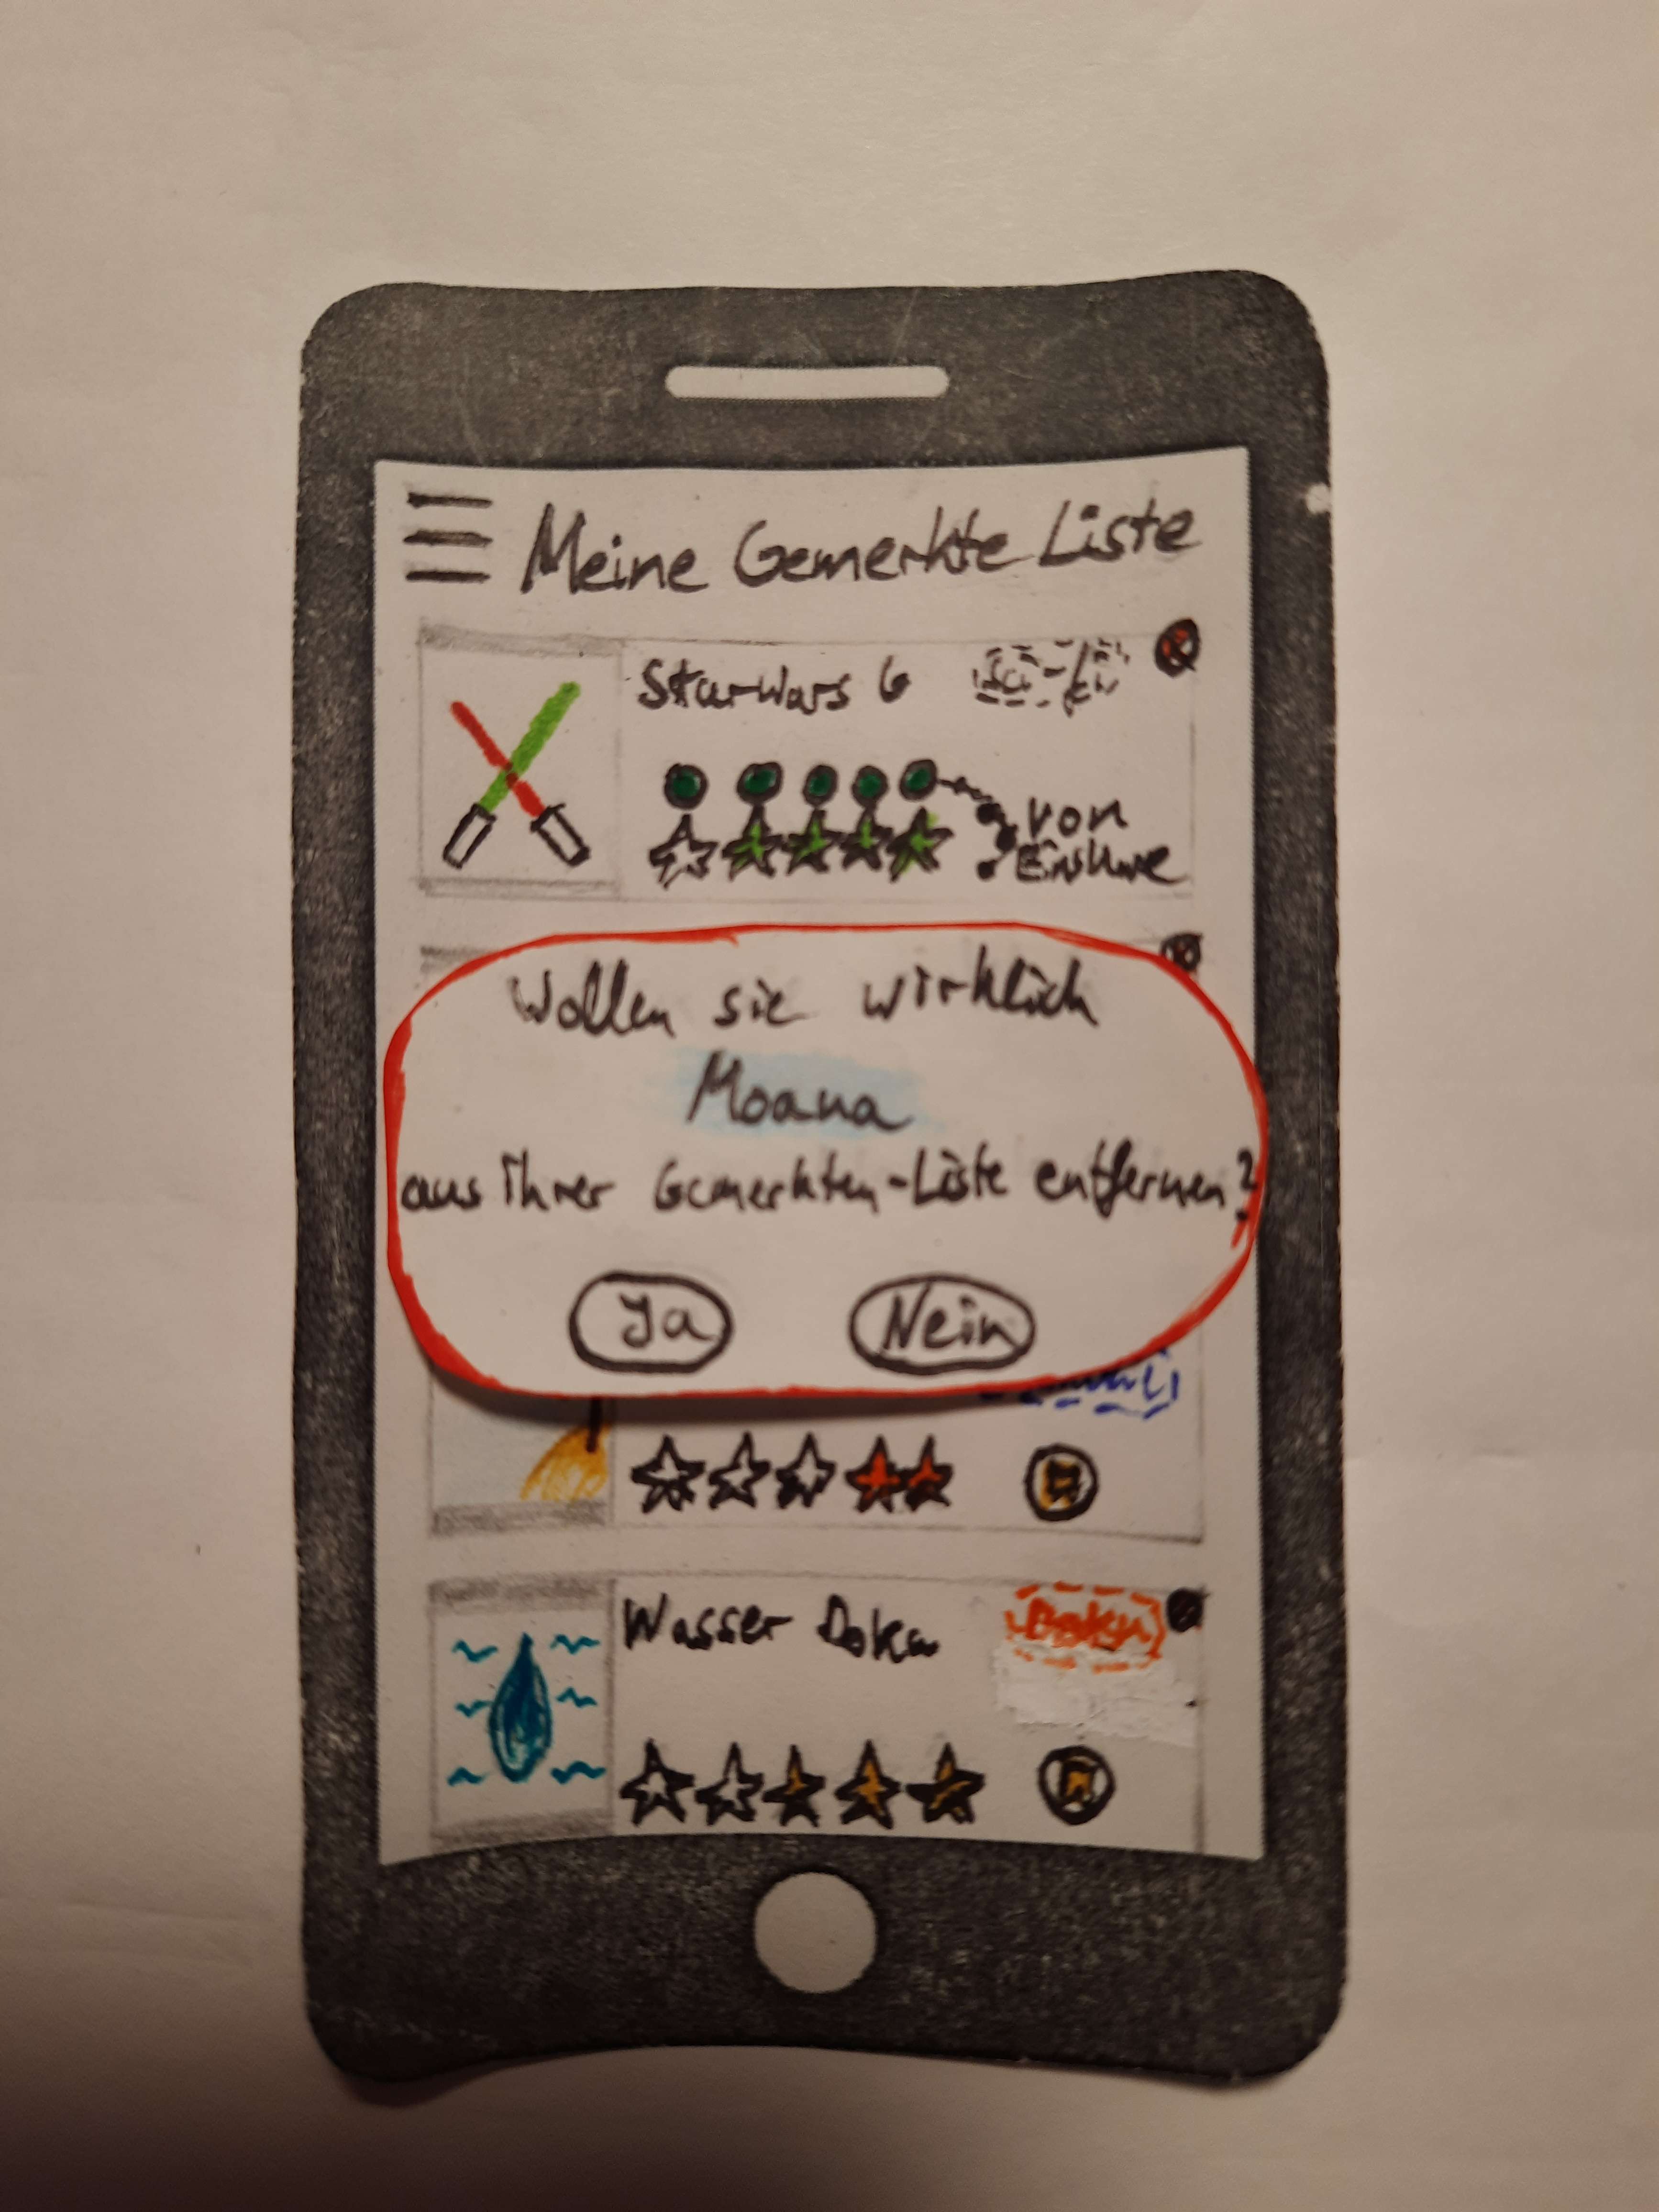 Meine Gemerkte Liste
Star Wars 6 Sci-fi
von
Wollen sie wirklich
Moana
aus ihrer Gemerkten-Liste entfernen?
Ja Nein
Wasser Doku Doku